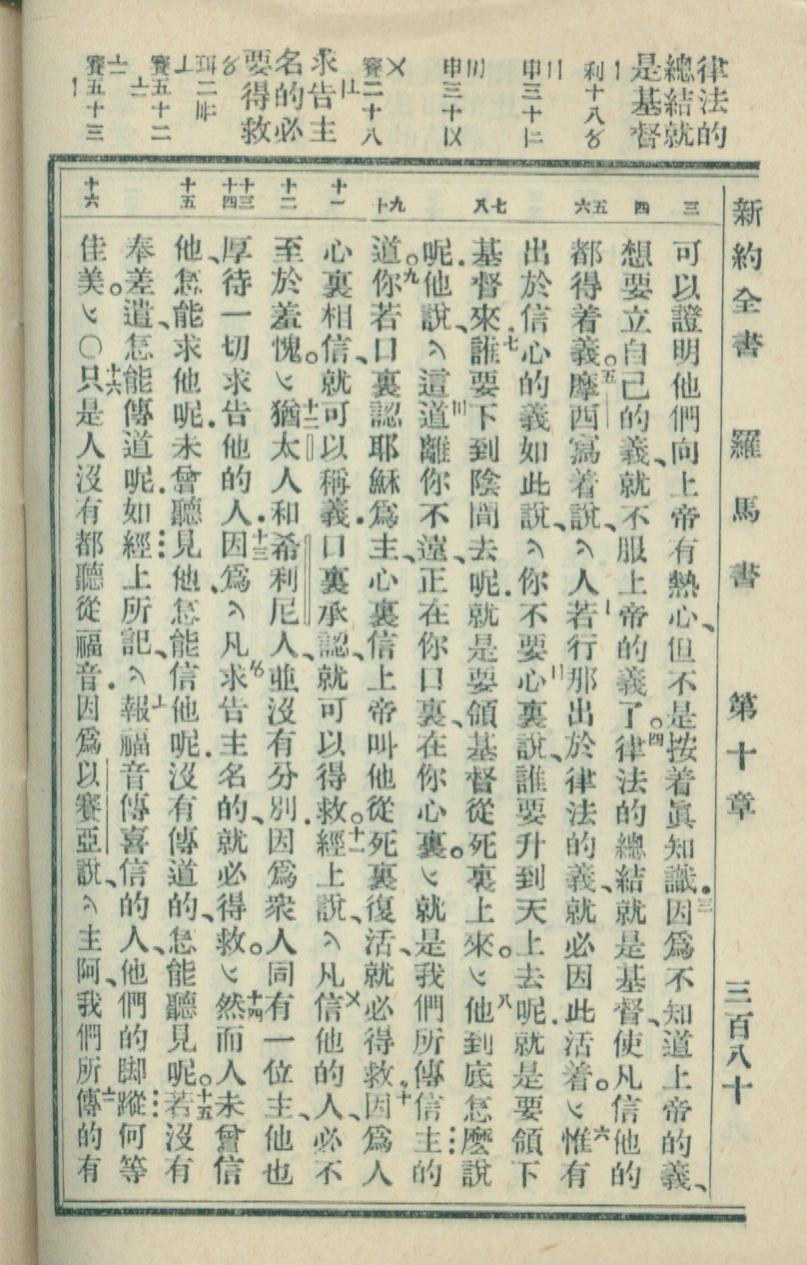 新約全書 羅馬書 第十章 三百八十
律法的
總結就
是基督
利十八〥
申三十〡二
申三十以
賽二十八
求告主
名的必
要得救
珥二〣〢
賽五十二
賽五十三
三
四
五
六
七
八
九
十
十一
十二
十三
十四
十五
十六
可以證明他們向上帝有熱心、但不是按着眞知識.三因爲不知道上帝的義、
想要立自己的義、就不服上帝的義了。四律法的總結就是基督、使凡信他的
都得着義。五摩西寫着說、〽人若行那出於律法的義、就必因此活着。〽六惟有
出於信心的義如此說、〽你不要心裏說、誰要升到天上去呢.就是要領下
基督來.七誰要下到陰間去呢.就是要領基督從死裏上來。〽八他到底怎麼說
呢.他說、〽這道離你不遠、正在你口裏、在你心裏。〽就是我們所傳信主的
道。九你若口裏認耶穌爲主、心裏信上帝叫他從死裏復活、就必得救.十因爲人
心裏相信、就可以稱義.口裏承認、就可以得救。十一經上說、〽凡信他的人、必不
至於羞愧。〽十二猶太人和希利尼人、並沒有分別.因爲衆人同有一位主、他也
厚待一切求告他的人.十三因爲、〽凡求告主名的、就必得救。〽十四然而人未曾信
他、怎能求他呢.未曾聽見他、怎能信他呢.沒有傳道的、怎能聽見呢。十五若沒有
奉差遣、怎能傳道呢.如經上所記、〽報福音傳喜信的人、他們的脚蹤何等
佳美。〽〇十六只是人沒有都聽從福音.因爲以賽亞說、〽主阿、我們所傳的有